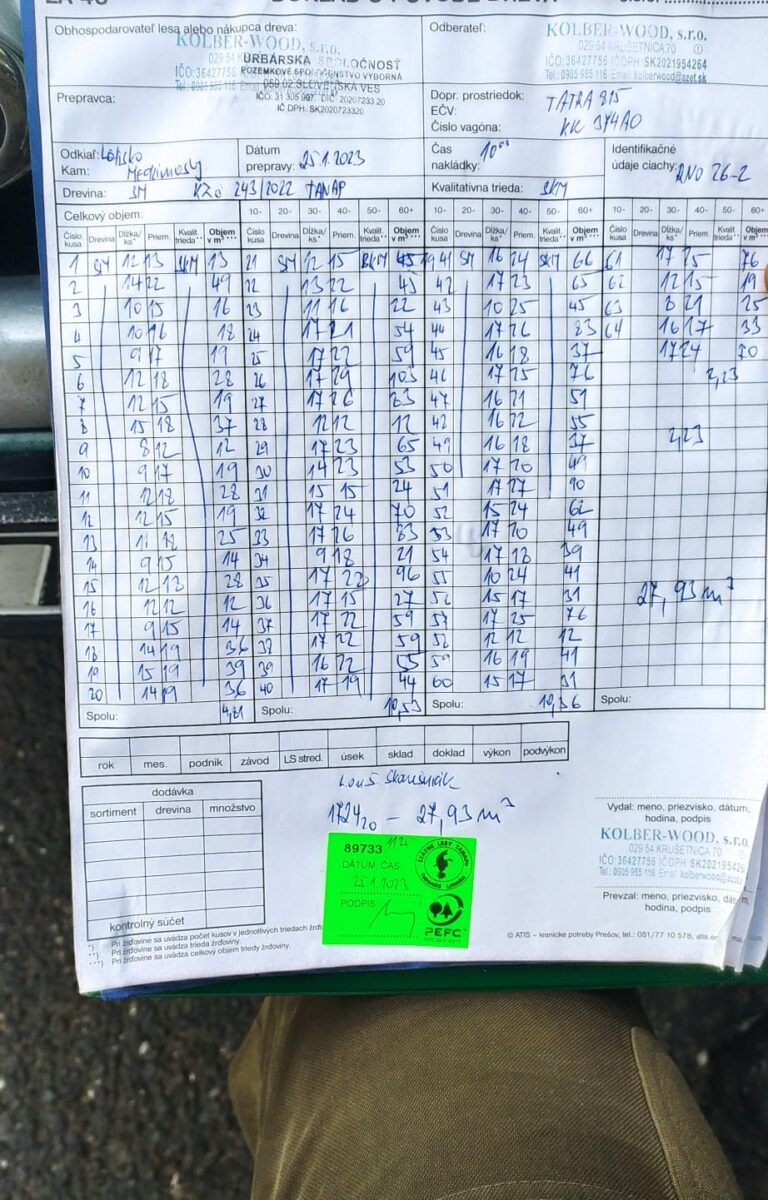 Obhospodarovateľ lesa alebo nákupca dreva:
KOLBER-WOOD, s.r.o.
URBÁRSKA SPOLOČNOSŤ
POZEMKOVÉ SPOLOČENSTVO VÝBORNÁ
059 02 SLOVENSKÁ VES
IČO: 31 305 997, DIČ: 2020723320
IČ DPH: SK2020723320
Odberateľ:
KOLBER-WOOD, s.r.o.
029 54 KRUŠETNICA 70
IČO: 36427756 IČ DPH: SK2021954264
Tel.: 0905 985 116 Email: kolberwood@azet.sk
Prepravca:
Dopr. prostriedok: TATRA 815
EČV:
Číslo vagóna: KK 374AO
Odkiaľ:
Kam: Medzimosty
Dátum
prepravy: 25.1.2023
Čas
nakládky: 10
Identifikačné
údaje ciachy: RNO 26-2
Drevina: SM KZo 243/2022 TANAP
Kvalitatívna trieda: SKM
Celkový objem: 10- 20- 30- 40- 50- 60+ 10- 20- 30- 40- 50- 60+ 10- 20- 30- 40- 50- 60+ 10- 20- 30- 40- 50- 60+
Číslo kusa Drevina Dĺžka/ks* Priem. Kvalit. trieda** Objem v m³ Číslo kusa Drevina Dĺžka/ks* Priem. Kvalit. trieda** Objem v m³ Číslo kusa Drevina Dĺžka/ks* Priem. Kvalit. trieda** Objem v m³ Číslo kusa Drevina Dĺžka/ks* Priem. Kvalit. trieda** Objem v m³
1 SM 12 13 SKM 13 21 SM 12 15 45 41 SM 16 24 SKM 66 61 17 25 76
2 14 22 49 22 13 22 45 42 17 23 65 62 12 15 19
3 10 15 16 23 11 16 22 43 10 25 45 63 8 21 25
4 10 16 18 24 17 21 54 44 17 26 83 64 16 17 33
5 9 17 19 25 17 22 59 45 16 18 37 17 24 70
6 12 18 28 26 17 29 103 46 17 25 76 2,23
7 12 15 19 27 17 26 83 47 16 21 51
8 15 18 37 28 12 12 12 48 16 22 55
9 8 12 12 29 17 23 65 49 16 18 37 2,23
10 9 17 19 30 14 23 53 50 17 20 49
11 12 18 28 31 15 15 24 51 17 27 90
12 12 15 19 32 17 24 70 52 15 24 62
13 11 18 25 33 17 26 83 53 17 20 49
14 9 15 14 34 9 18 21 54 17 18 39
15 12 18 28 35 17 28 96 55 10 24 41
16 12 12 12 36 17 15 27 56 15 17 31 27,93 m³
17 9 15 14 37 17 22 59 57 17 25 76
18 14 19 36 38 17 22 59 58 12 12 12
19 15 19 39 39 16 22 55 59 16 19 41
20 14 19 36 40 17 19 44 60 15 17 31
Spolu: 4,81 Spolu: 10,53 Spolu: 10,36 Spolu:
rok mes. podnik závod LS stred. úsek sklad doklad výkon podvýkon
dodávka
sortiment drevina množstvo
kontrolný súčet
1724,20 - 27,93 m³
89733
DÁTUM: ČAS:
25.1.2023
PODPIS
ŠTÁTNE LESY TANAPU
TATRANSKÁ LOMNICA
PEFC
Vydal: meno, priezvisko, dátum,
hodina, podpis
KOLBER-WOOD, s.r.o.
029 54 KRUŠETNICA 70
IČO: 36427756 IČ DPH: SK202195426
Tel.: 0905 985 116 Email: kolberwood@azet
Prevzal: meno, priezvisko, dátum,
hodina, podpis
*) Pri žrďovine sa uvádza počet kusov v jednotlivých triedach žrď
**) Pri žrďovine sa uvádza trieda žrďoviny.
***) Pri žrďovine sa uvádza celkový objem triedy žrďoviny.
© ATIS – lesnícke potreby Prešov, tel.: 051/77 10 578, atis